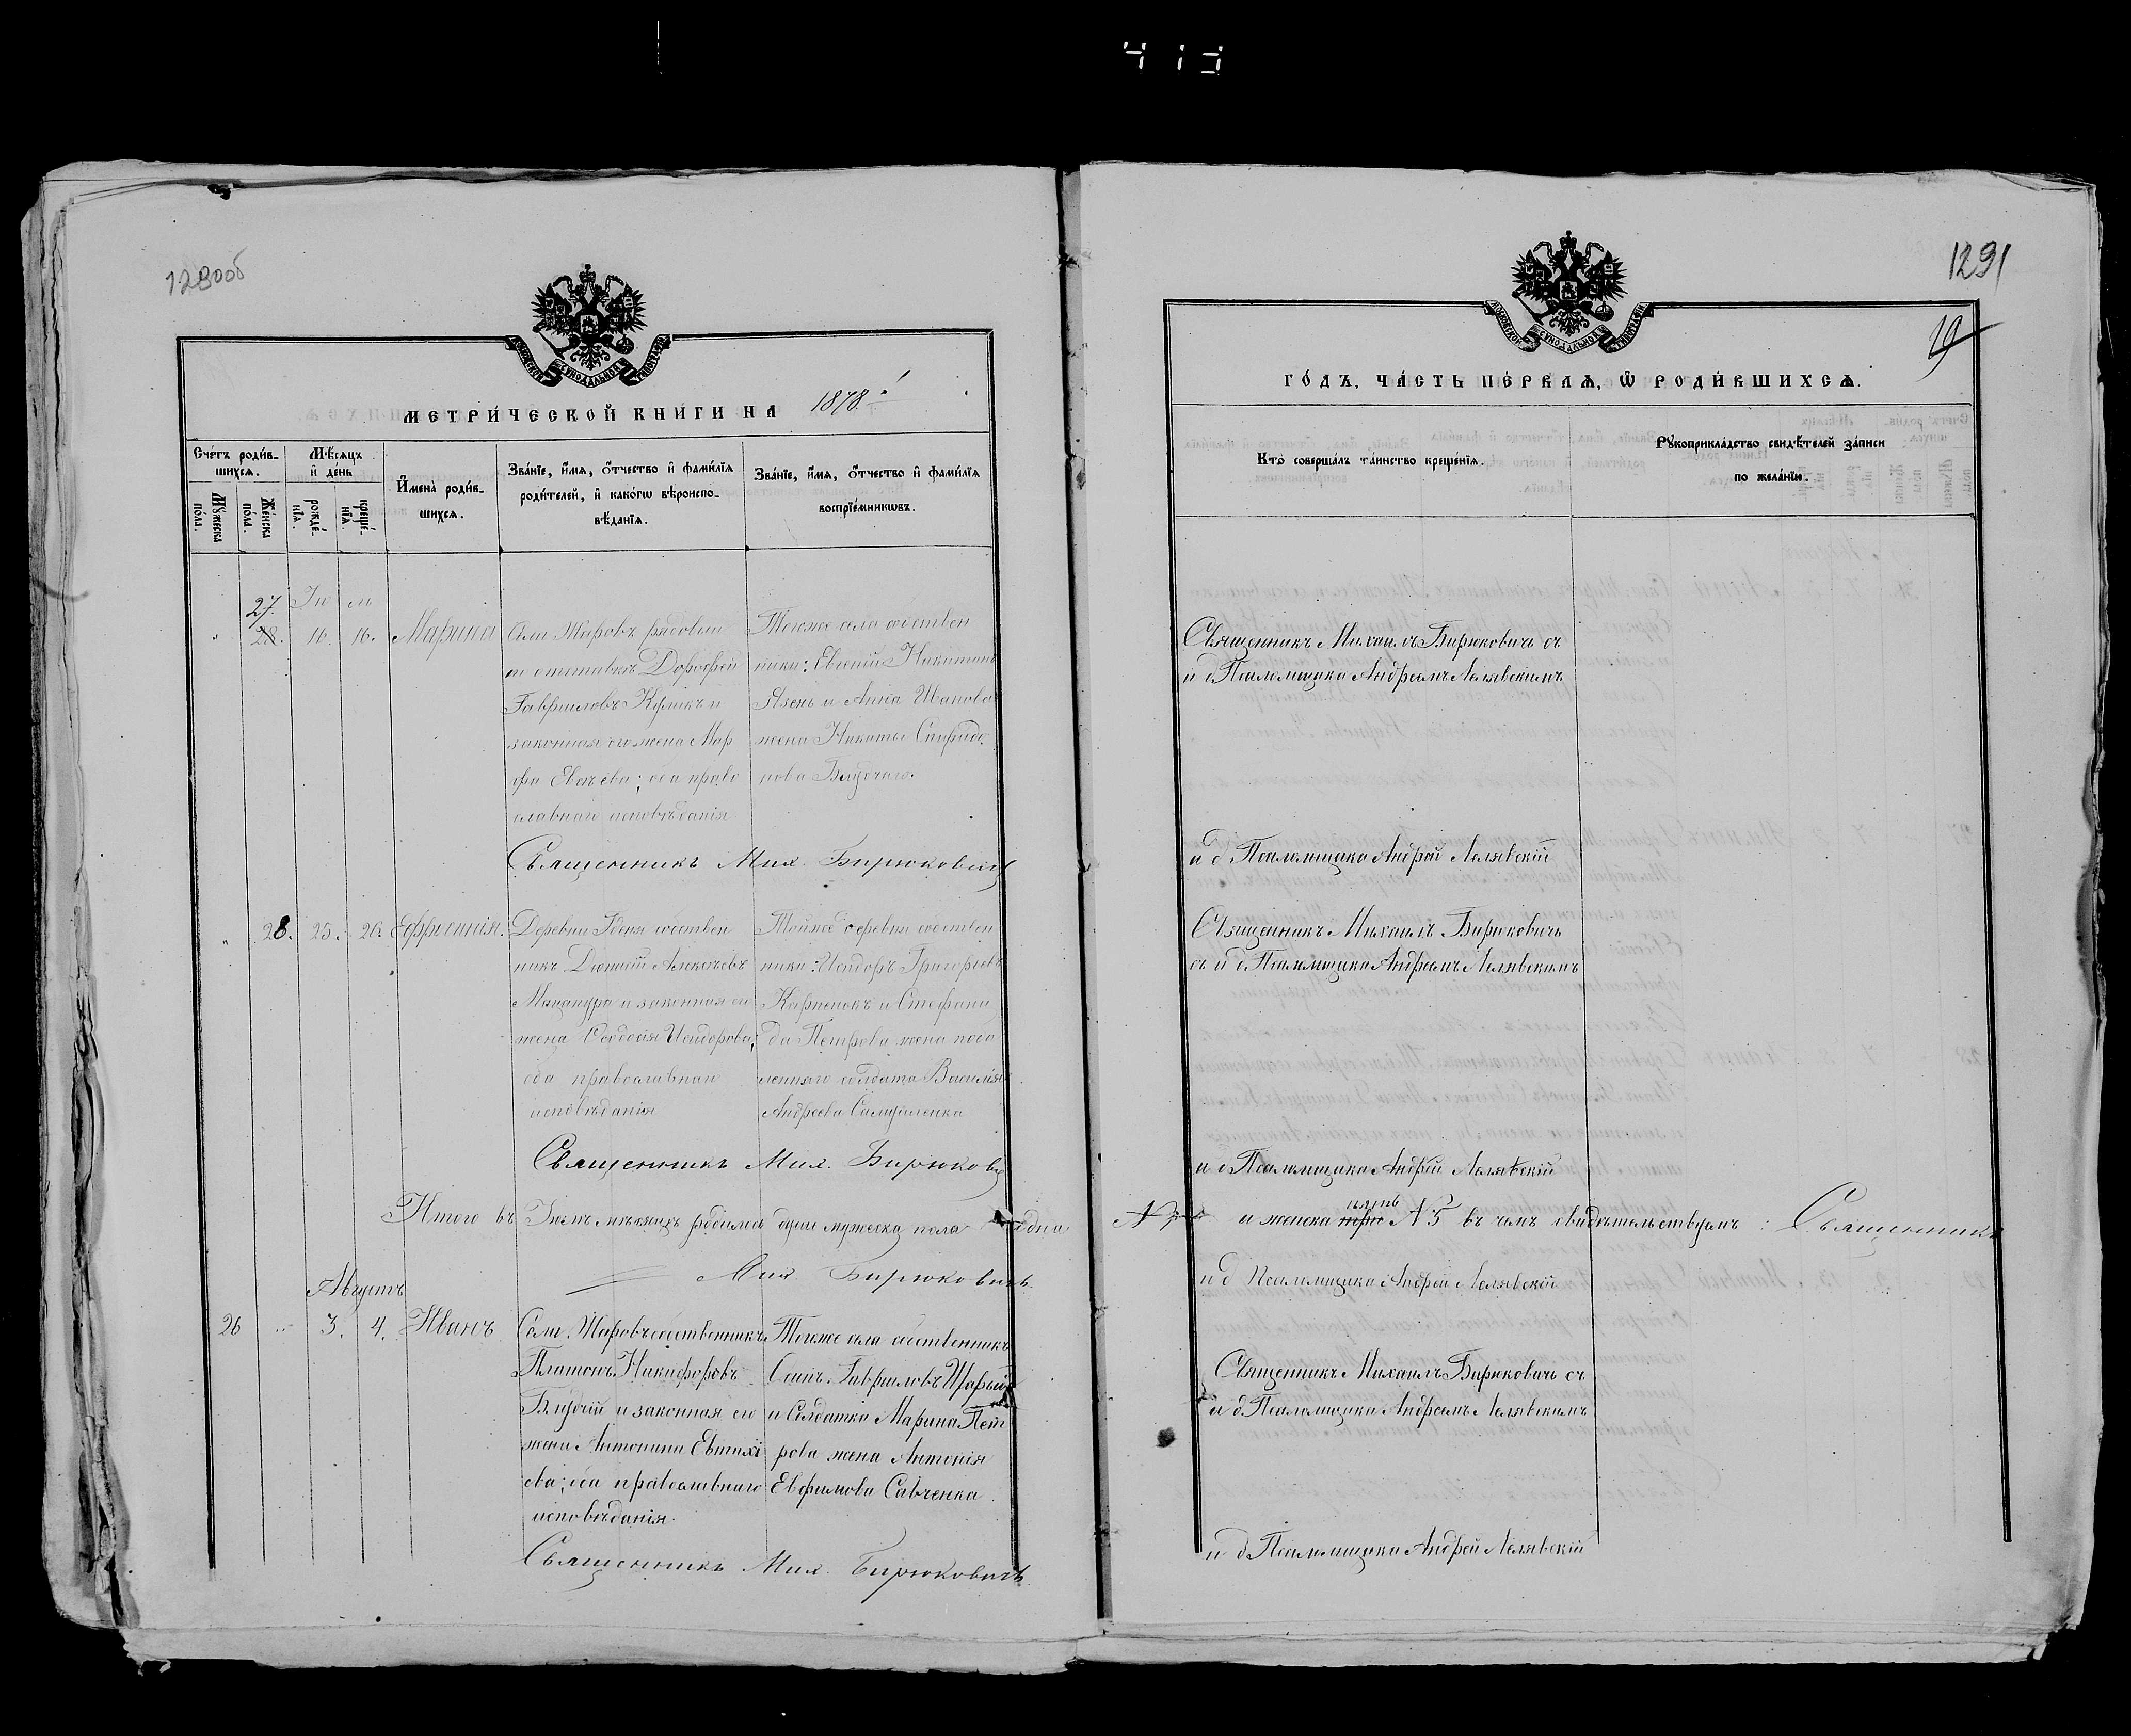 413
1290об
МЕТРИЧЕСКОЙ КНИГИ НА 1878.
Счетъ родив-
шихся.
Мѣсяцъ
и день
Мужеска
пола.
Женска
пола.
рожде-
нія.
креще-
нія.
Имена родив-
шихся.
Званіе, имя, отчество и фамилія
родителей, и какого вѣроиспо-
вѣданія.
Званіе, имя, отчество и фамилія
воспріемниковъ.
27. Іюль
28. 16. 16. Марина
Села Жаровъ рядовый
въ отставкѣ Дорофей
Гавриловъ
законная его жена Мар
фа; оба право
славнаго исповѣданія.
Тогоже села собствен
ники: Евгеній Никитинъ
Язень и Анна Иванова
жена Никиты Спиридо
нова Блудчаго.
Священникъ Мих. Бирюковичъ
28. 25. 26. Ефросинія.
Деревни собствен
никъ Діонисій Алексѣевъ
Мацапура и законная его
жена Ѳеодосія Исидорова;
оба православнаго
исповѣданія
Тойже деревни собствен
ники: Исидоръ Григорьевъ
Карпенокъ и Стефани
да Петрова жена
солдата Василія
Андреева Самуйленка
Священникъ Мих. Бирюкович
Итого въ Іюлѣ мѣсяцѣ родилось душъ мужеска пола одна
Мих Бирюковичъ.
Августъ
26 3. 4. Иванъ
Села Жаровъ собственникъ
Платонъ Никифоровъ
Блудчій и законная его
жена Антонина Евтихі
ева; оба православнаго
исповѣданія.
Тогоже села собственникъ
Гавриловъ
и Солдатка Марина Пет
рова жена Антонія
Евфимова Савченка.
Священникъ Мих. Бирюковичъ
1291
19
ГОДЪ, ЧАСТЬ ПЕРВАЯ, Ѡ РОДИВШИХСЯ.
Кто совершалъ таинство крещенія.
Рукоприкладство свидѣтелей записи
по желанію.
Священникъ Михаилъ Бирюковичъ съ
и д Псаломщика Андреемъ Лелявскимъ
и д Псаломщика Андрей Лелявскій
Священникъ Михаилъ Бирюковичъ
съ и д Псаломщика Андреемъ Лелявскимъ
и д Псаломщика Андрей Лелявскій
пять
и женска три N 5 въ чемъ свидѣтельствуемъ: Священникъ
и д Псаломщика Андрей Лелявскій
Священникъ Михаилъ Бирюковичъ съ
и д Псаломщика Андреемъ Лелявскимъ
и д Псаломщика Андрей Лелявскій